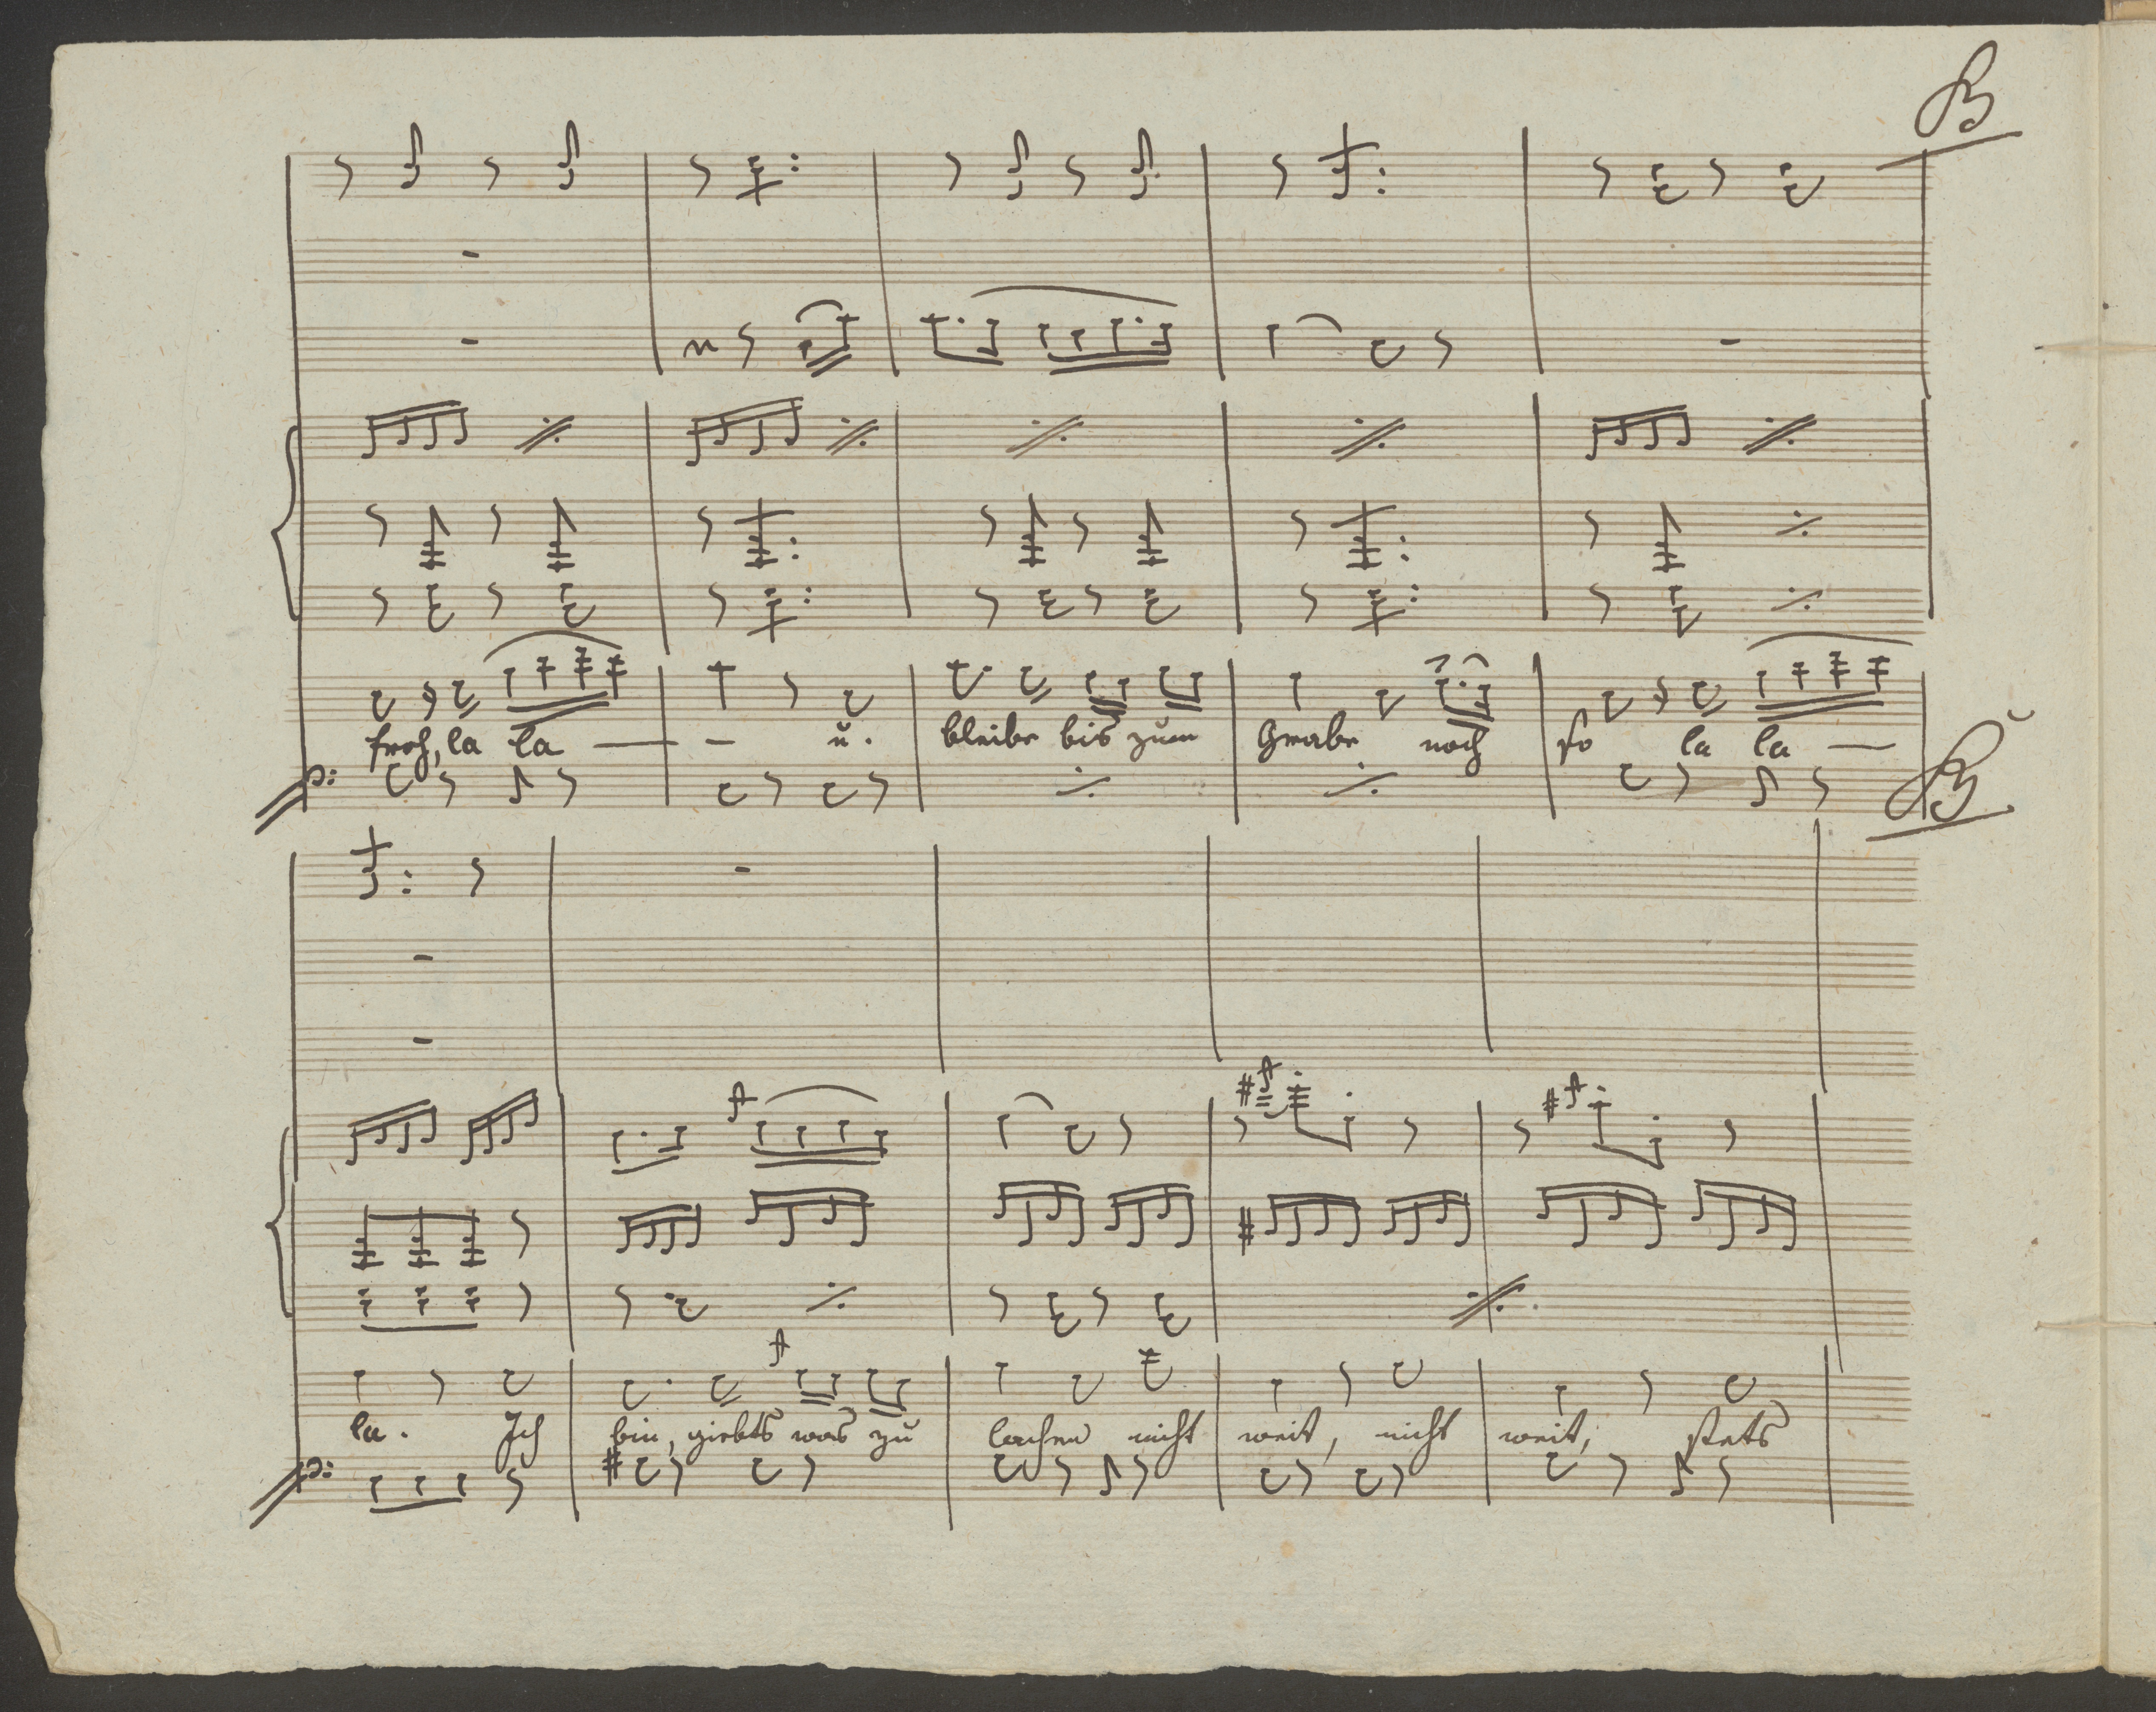 B
froh, la la — – ŭ. bleibe bis zŭm Grabe noch so la la —
B
la. Ich bin, giebts was zŭ lachen nicht weit, nicht weit, stets